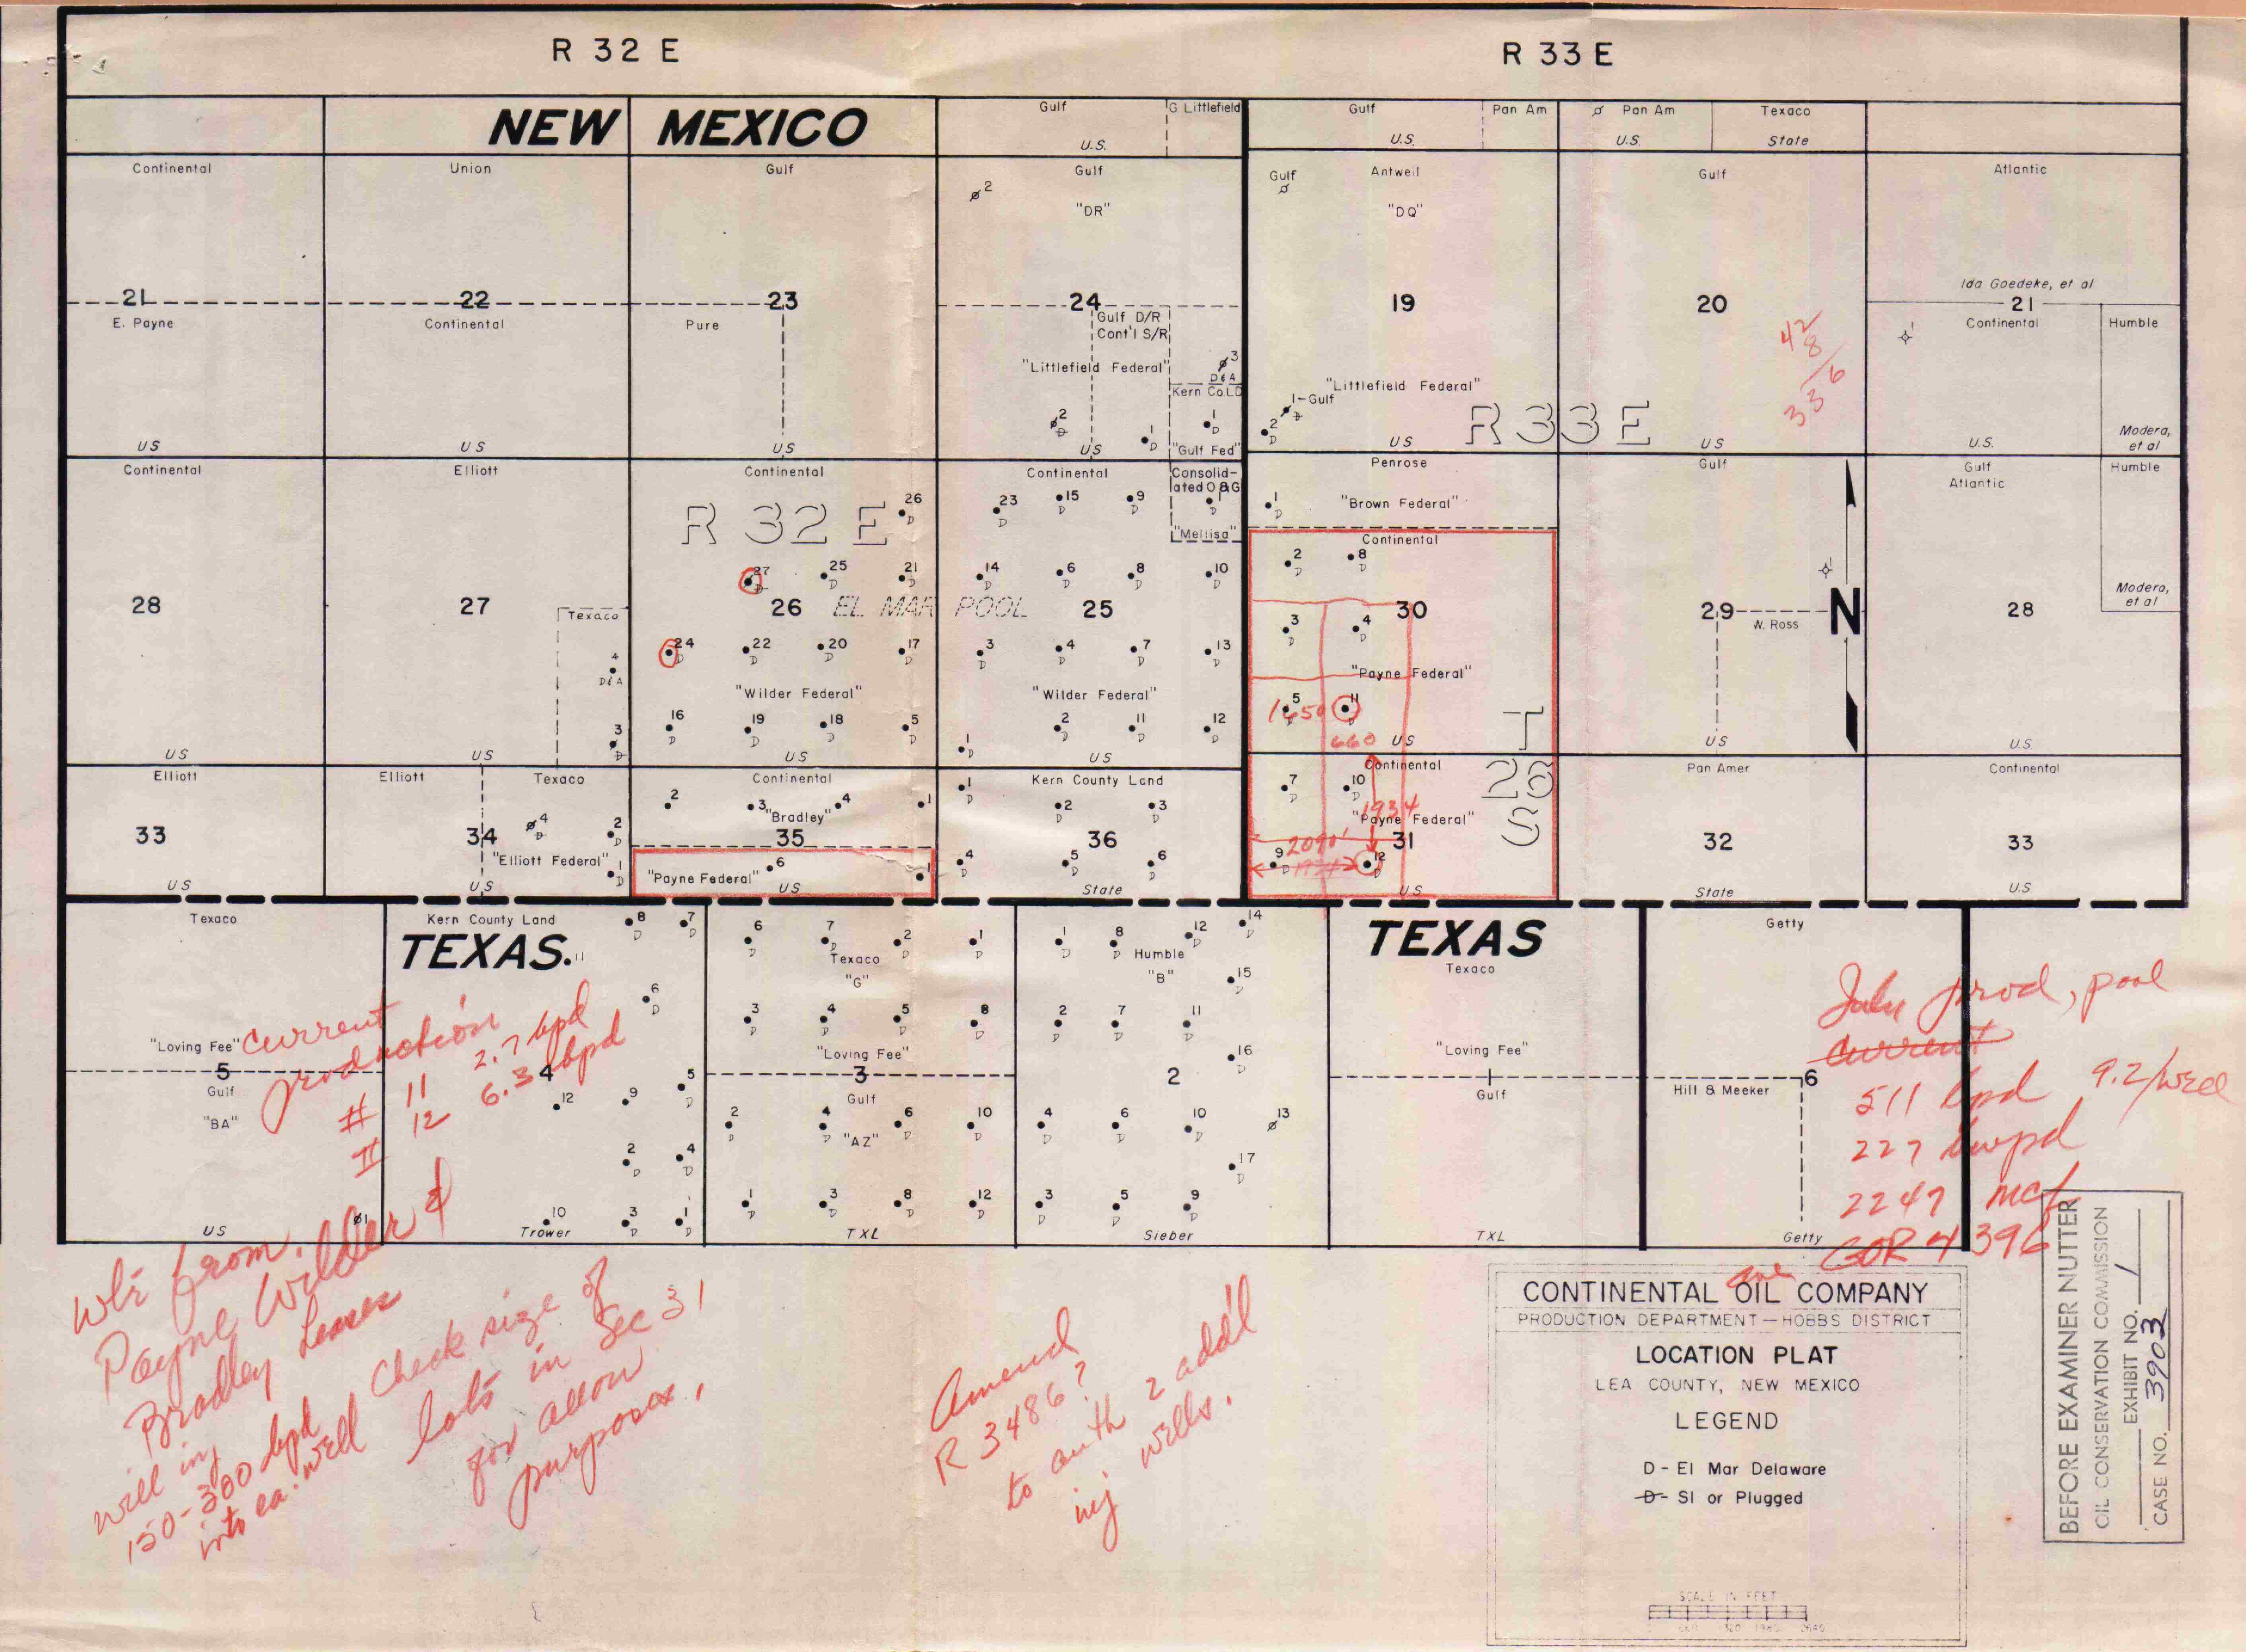 R 32 E
R 33 E
NEW MEXICO
Gulf
U.S.
G Littlefield
Gulf
U.S.
Pan Am
Pan Am
U.S.
Texaco
State
Continental
21
E. Payne
US
Union
22
Continental
US
Gulf
23
Pure
US
2
Gulf
"DR"
24
Gulf D/R
Cont'l S/R
"Littlefield Federal"
3
D&A
Kern Co.LD
2
D
1
D
1
D
US
"Gulf Fed"
Gulf
Antweil
"DQ"
19
"Littlefield Federal"
1-Gulf
D
2
D
US
R 33 E
Gulf
20
42
8
336
US
Atlantic
Ida Goedeke, et al
21
Continental
Humble
1
U.S.
Modera,
et al
Continental
28
US
Elliott
27
Texaco
4
D&A
3
D
US
Continental
R 32 E
26
D
27
D
25
D
21
D
26
EL MAR POOL
24
D
22
D
20
D
17
D
"Wilder Federal"
16
D
19
D
18
D
5
D
US
Continental
Consolid-
ated O&G
23
D
15
9
D
1
D
"Mellisa"
14
D
6
D
8
D
10
D
25
3
D
4
D
7
D
13
D
"Wilder Federal"
1
D
2
D
11
D
12
D
US
Penrose
1
D
"Brown Federal"
Continental
2
D
8
D
30
3
D
4
D
"Payne Federal"
5
D
1650
11
D
660
US
T
26
S
Gulf
29
W. Ross
1
N
US
Gulf
Atlantic
Humble
28
Modera,
et al
U.S
Elliott
33
US
Elliott
Texaco
34
4
D
2
D
"Elliott Federal"
1
D
US
Continental
2
3
4
1
"Bradley"
35
"Payne Federal"
6
1
US
Kern County Land
1
D
2
D
3
D
36
4
D
5
D
6
D
State
Continental
7
D
10
D
1934
"Payne Federal"
31
2090'
9
D
1934
12
D
U.S
Pan Amer
32
State
Continental
33
U.S
Texaco
"Loving Fee"
5
Gulf
"BA"
US
1
Kern County Land
TEXAS.
8
D
7
D
6
D
4
5
D
9
12
2
D
4
D
10
3
D
1
D
Trower
6
D
7
D
2
D
1
D
Texaco
"G"
3
D
4
D
5
D
8
D
"Loving Fee"
3
Gulf
2
D
4
D
6
D
10
D
"AZ"
1
D
3
D
8
D
12
D
TXL
1
D
8
D
12
D
14
D
Humble
"B"
15
D
2
D
7
D
11
D
16
D
2
4
D
6
D
10
D
13
17
D
3
D
5
D
9
D
Sieber
TEXAS
Texaco
"Loving Fee"
1
Gulf
TXL
Getty
Hill & Meeker
6
Getty
current
production
# 11 2.7 bpd
# 12 6.3 bpd
July prod, pool
current
511 bpd 9.2/well
227 bwpd
2247 mcf
ave GOR 4396
wtr from
Payne Wilder &
Bradley Leases
will inj
150-300 bpd
into ea. well
Check size of
lots in Sec 31
for allow
purposes.
Amend
R 3486?
to auth 2 add'l
inj wells.
CONTINENTAL OIL COMPANY
PRODUCTION DEPARTMENT — HOBBS DISTRICT
LOCATION PLAT
LEA COUNTY, NEW MEXICO
LEGEND
D - El Mar Delaware
D - SI or Plugged
SCALE IN FEET
BEFORE EXAMINER NUTTER
OIL CONSERVATION COMMISSION
EXHIBIT NO. 1
CASE NO. 3903